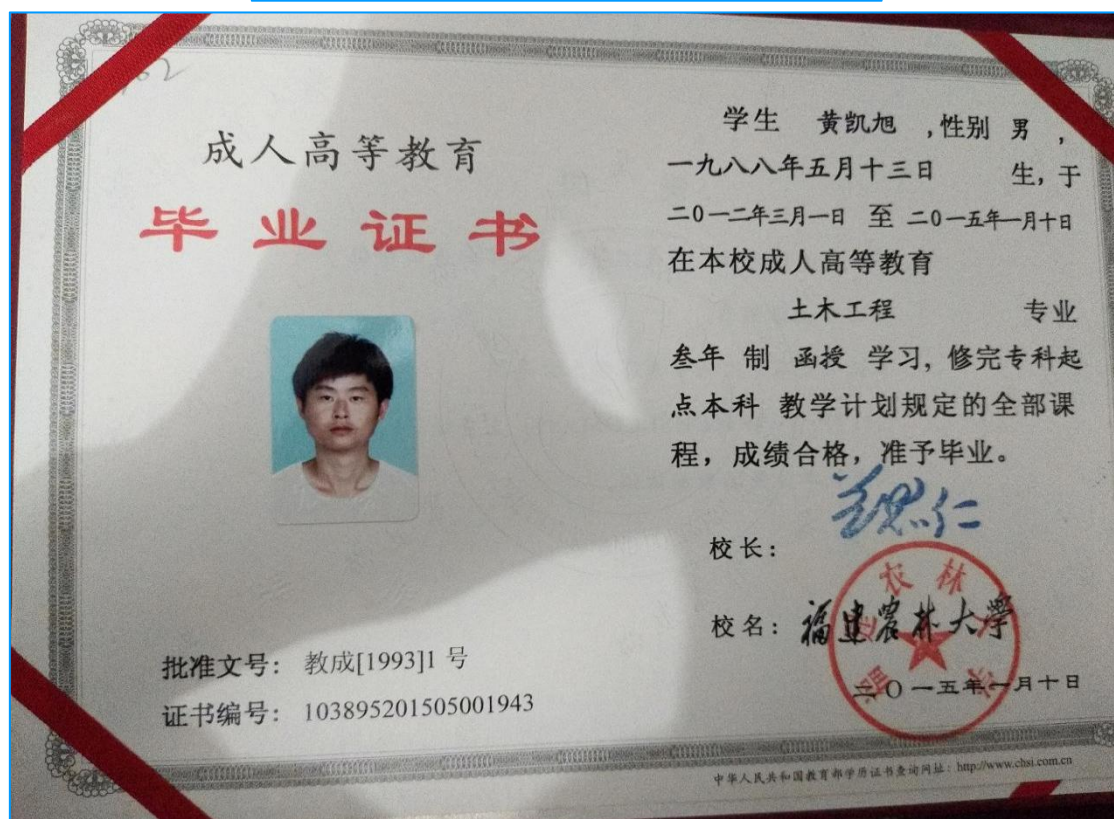 成人高等教育
毕业证书
批准文号： 教成[1993]1 号
证书编号： 103895201505001943
学生 黄凯旭 ,性别 男 ,
一九八八年五月十三日 生, 于
二0一二年三月一日 至 二0一五年一月十日
在本校成人高等教育
土木工程 专业
叁年 制 函授 学习, 修完专科起
点本科 教学计划规定的全部课
程， 成绩合格， 准予毕业。
校长：
校名： 福建农林大学
二〇一五年一月十日
中华人民共和国教育部学历证书查询网址： http://www.chsi.com.cn